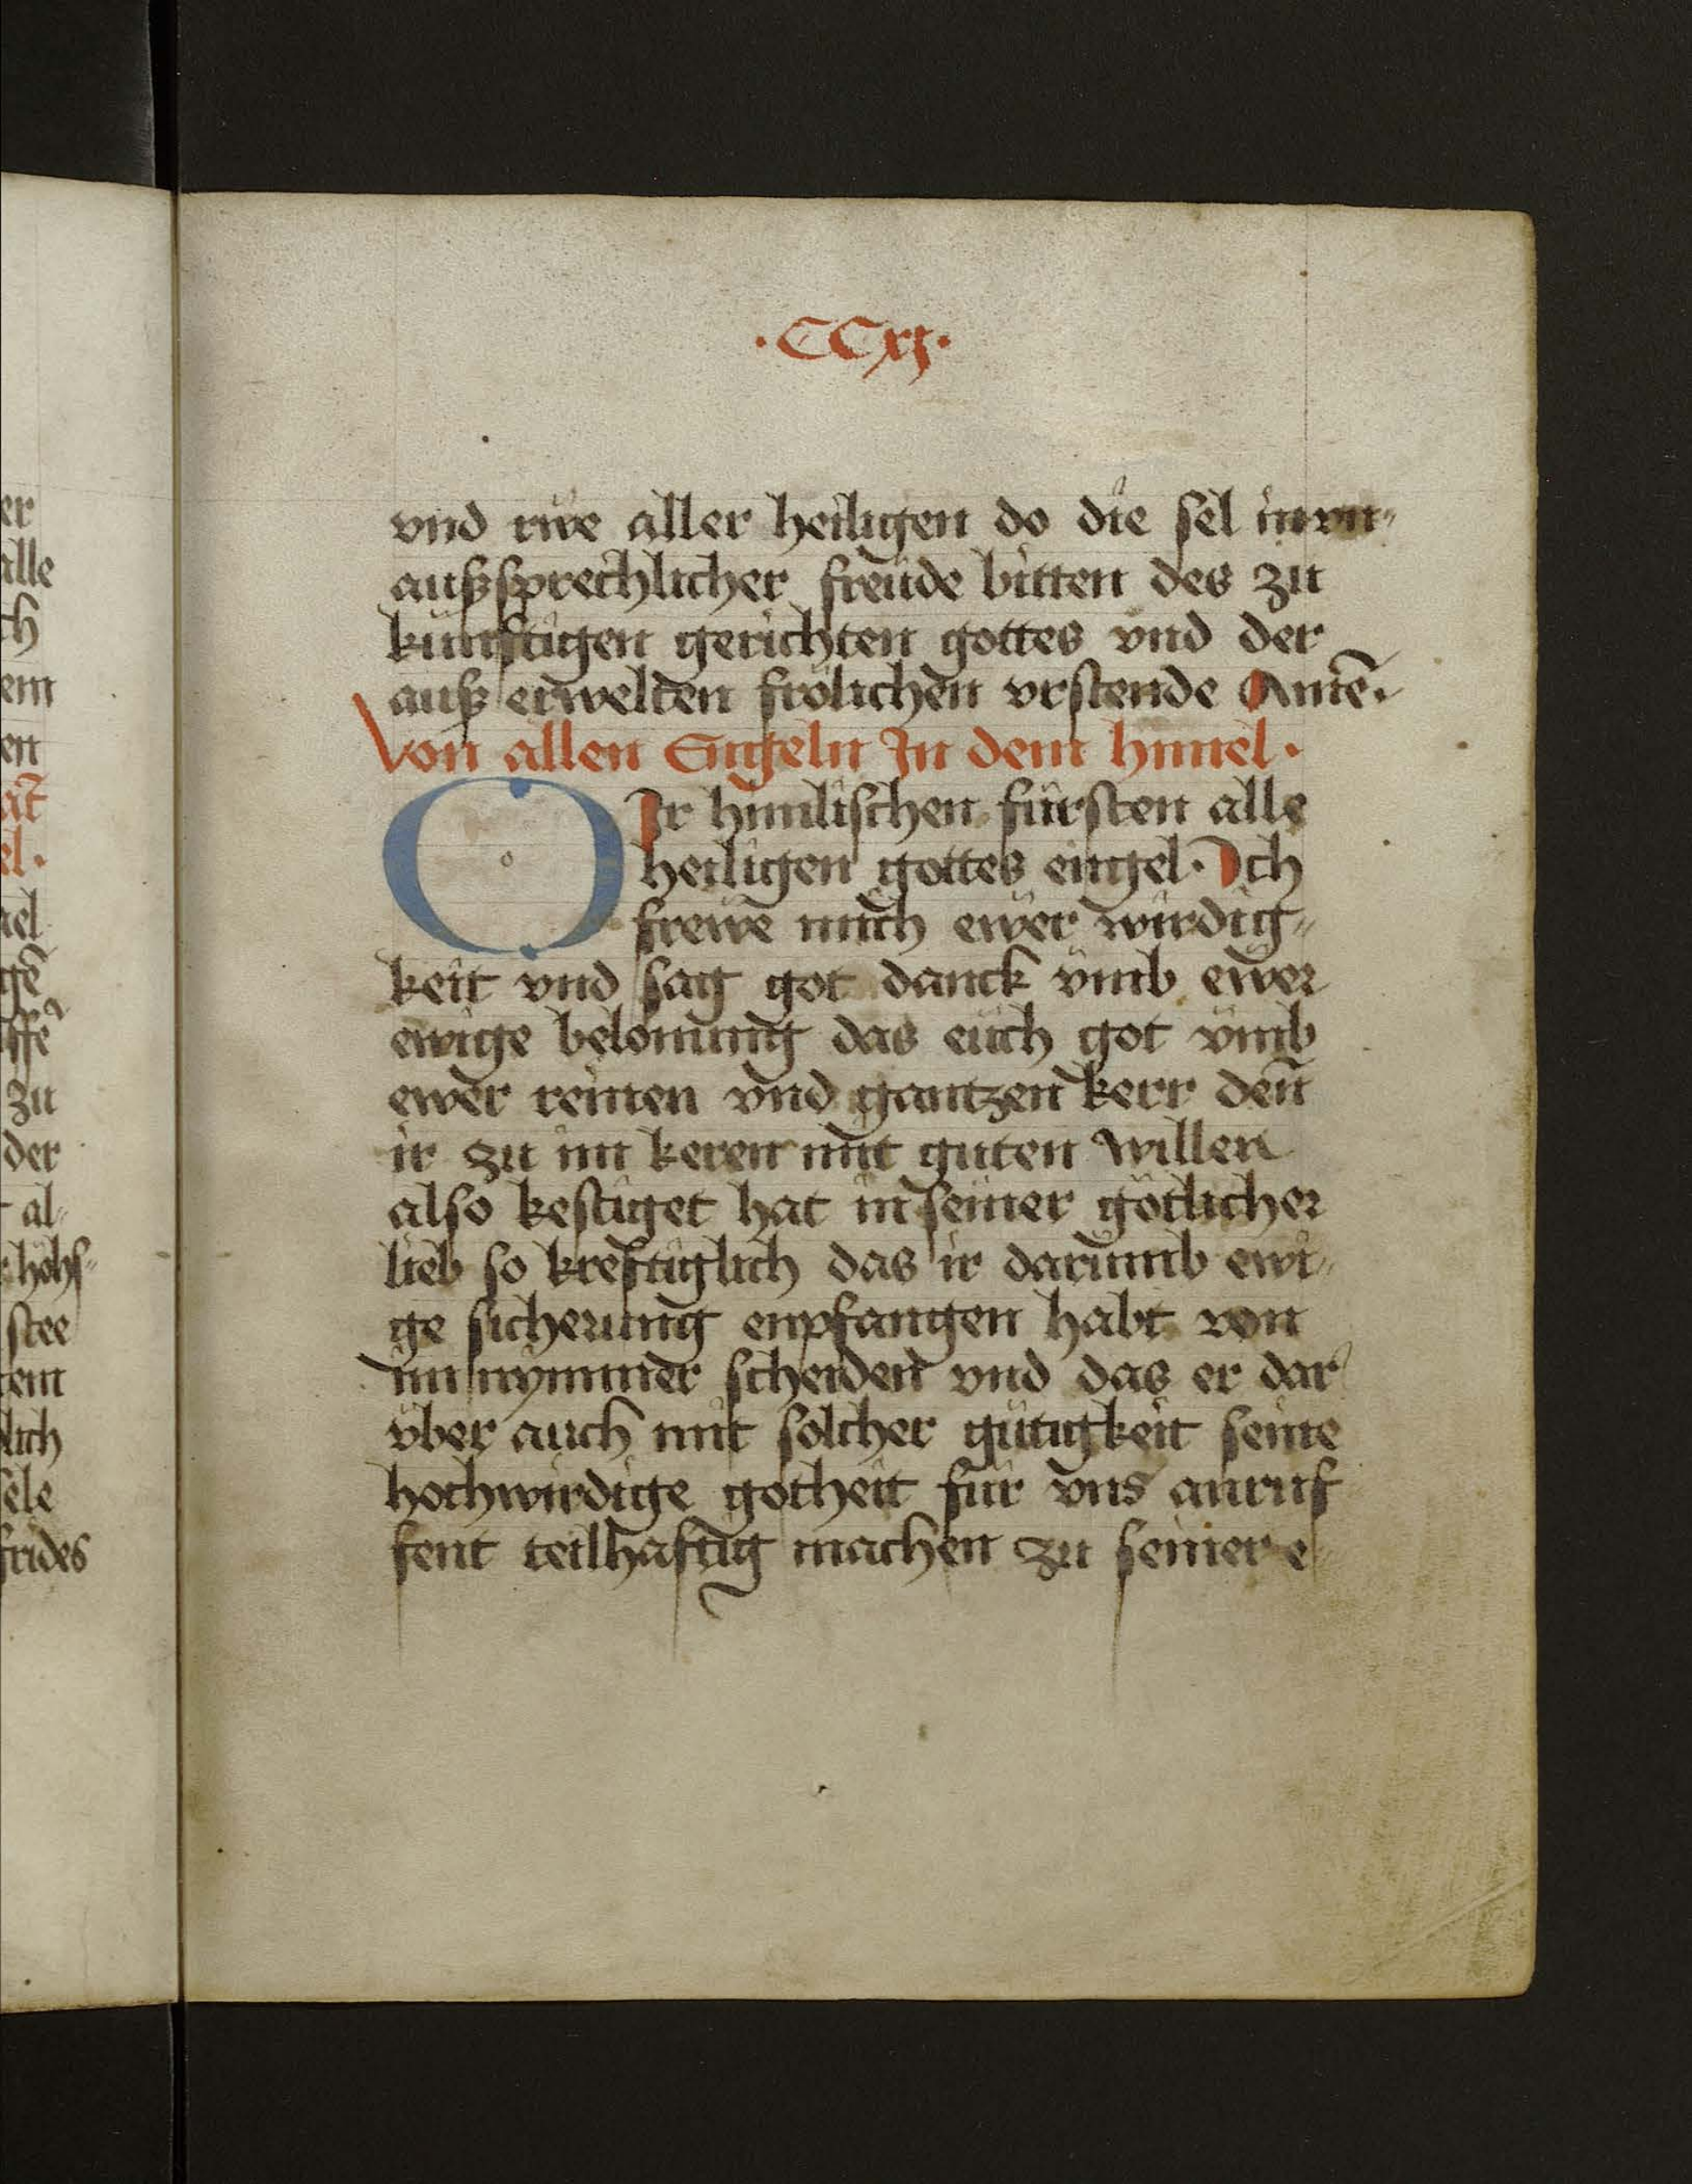 ·CCxj·
vnd rwe aller heiligen do die sel in vn-
außsprechlicher freüde bitten des zu
künftigen gerichten gottes vnd der
auß erwelten frölichen vrstende Amē.
Von allen Engeln In dem himel·
O Ir himlischen fürsten alle
heiligen gottes engel· Ich
frewe mich ewer wirdig-
keit vnd sag got danck vmb ewer
ewige belonung das euch got vmb
ewer reinen vnd gantzen kerr den
ir zu im keren mit guten willen
also kestiget hat in seiner götlicher
lieb so kreftiglich das ir darumb ewi-
ge sicherung enpfangen habt von
im nymmer scheiden vnd das er dar
über auch mit solcher gütigkeit seine
hochwirdige gotheit für vns anruf
fent teilhaftig machen zu seiner e-
er
alle
ch
em
en
el·
ael
gē
zu
der
al-
höhs-
stee
lich
sele
frides